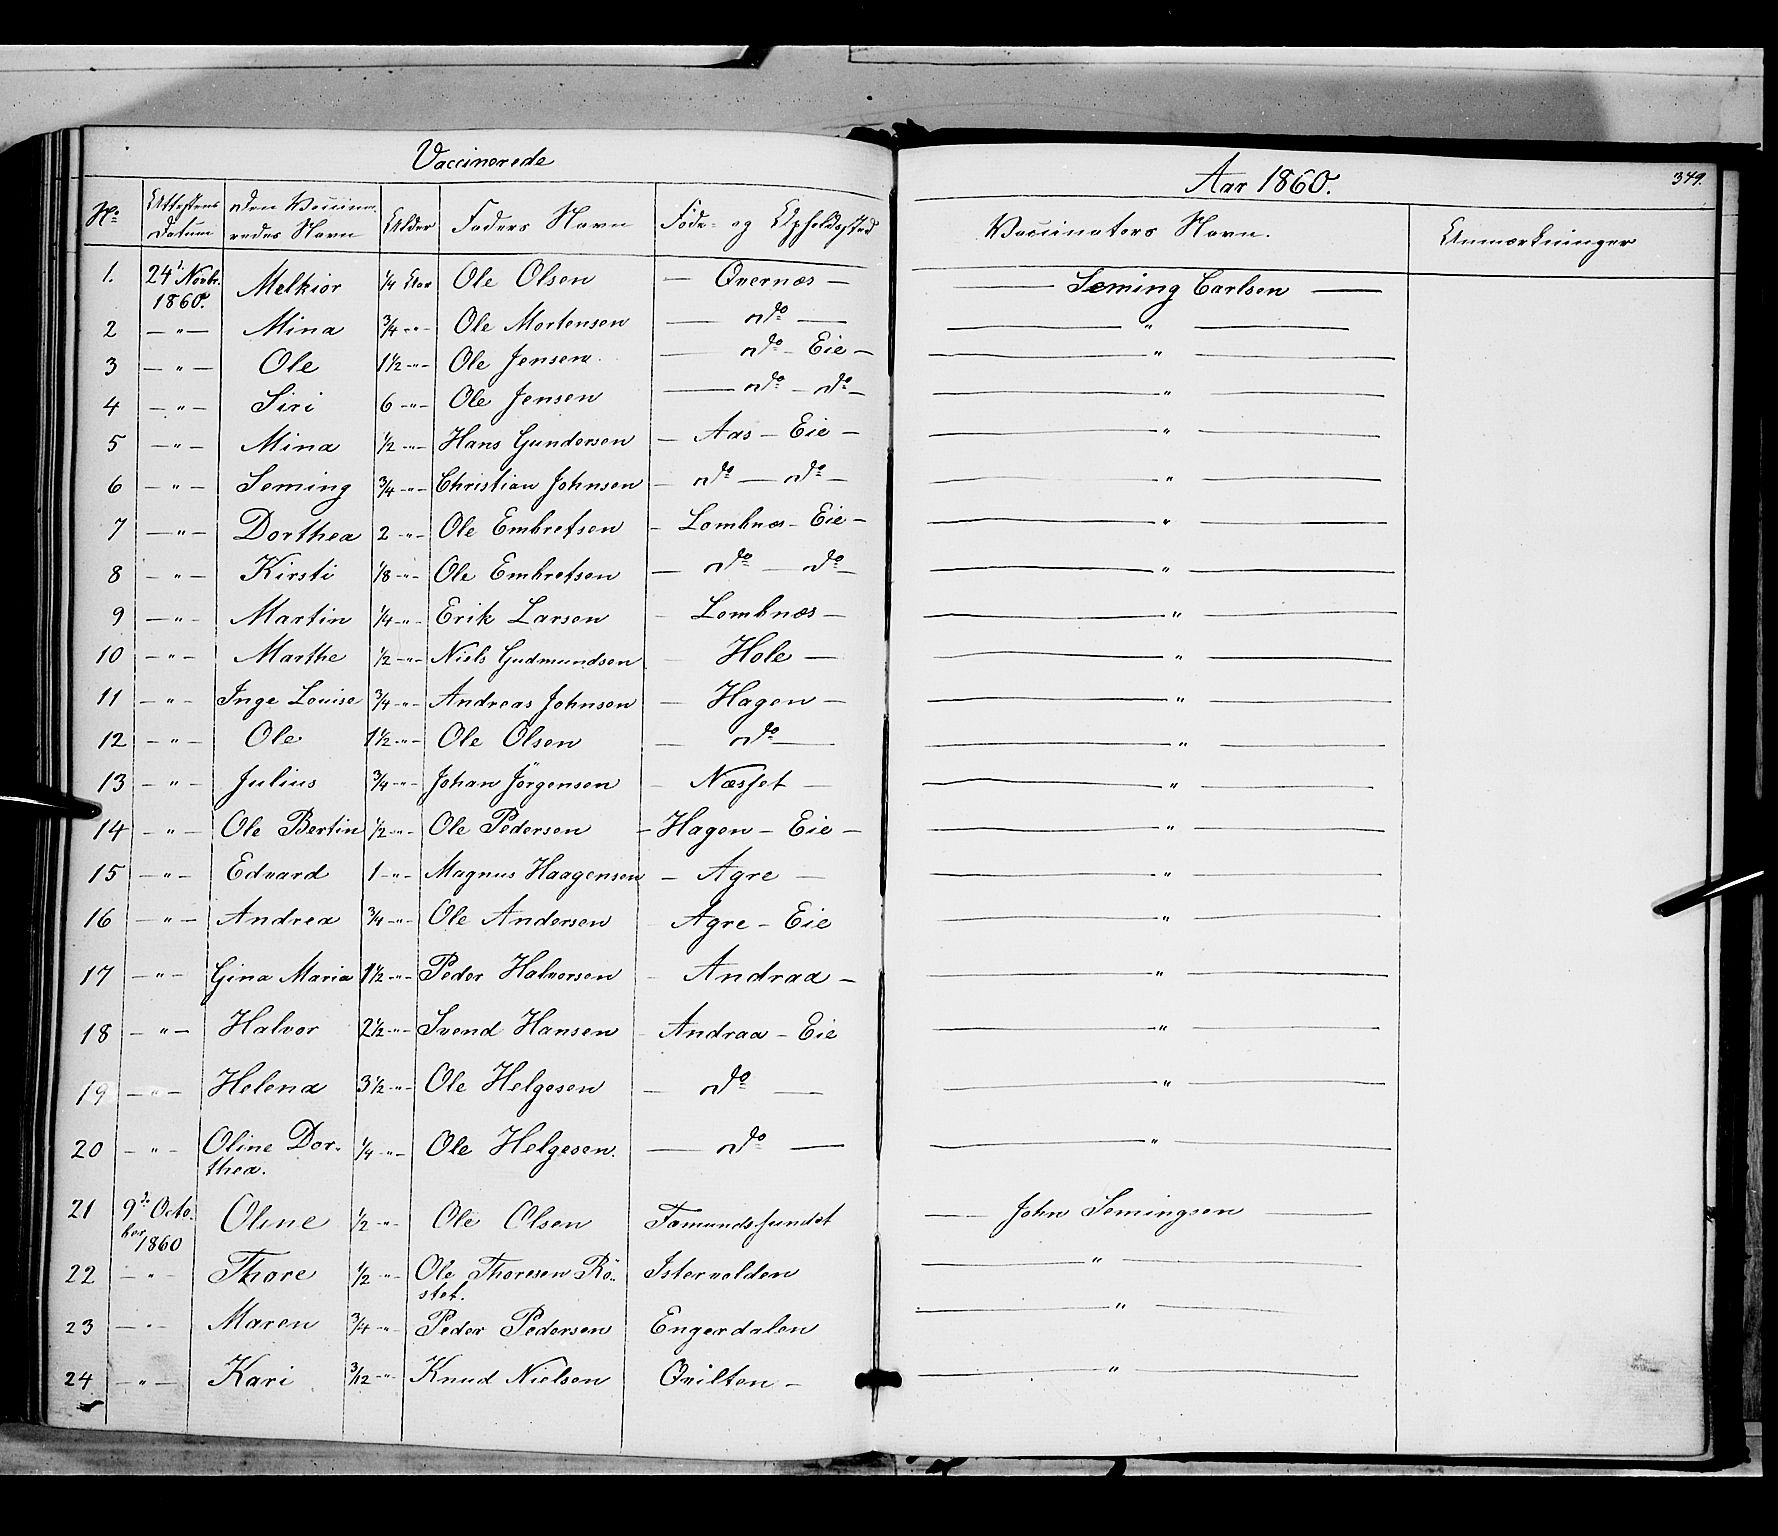 Vaccinerede
Aar 1860.
349.
No Attestens Datum den Vaccineredes Navn Alder Faders Navn Føde- og Opholdssted Vaccinators Navn. Anmærkninger
1. 24de Novbr. 1860. Melkior 1/4 Aar Ole Olsen — Qvernæs — — Seming Carlsen —
2 — " — Mina 3/4 - " - Ole Mortensen — do — — " —
3 — " — Ole 1 1/2 - " - Ole Jensen — do - Eie — — " —
4 — " — Siri 6 - " - Ole Jensen — do — do — — " —
5 — " — Mina 1/2 - " - Hans Gundersen — Aas — Eie — — " —
6 — " — Seming 3/4 - " - Christian Johnsen — do — do — — " —
7 — " — Dorthea 2 - " - Ole Embretsen — Lombnæs - Eie — — " —
8 — " — Kirsti 1/8 - " - Ole Embretsen — do — do — — " —
9 — " — Martin 1/4 - " - Erik Larsen — Lombnæs — — " —
10 — " — Marthe 1/2 - " - Niels Gudmundsen — Hole — — " —
11 — " — Inge Louise 3/4 - " - Andreas Johnsen — Hagen — — " —
12 — " — Ole 1 1/2 - " - Ole Olsen — do — — " —
13 — " — Julius 3/4 - " - Johan Jörgensen — Næsset — — " —
14 — " — Ole Bertin 1/2 - " - Ole Pedersen — Hagen — Eie — — " —
15 — " — Edvard 1 - " - Magnus Haagensen — Agre — — " —
16 — " — Andrea 3/4 - " - Ole Andersen Agre — Eie — " —
17 — " — Gina Maria 1 1/2 - " - Peder Halvorsen — Andraa — — " —
18 — " — Halvor 2 1/2 - " - Svend Hansen — Andraa — Eie — " —
19 — " — Helena 3 1/2 - " - Ole Helgesen — do — — " —
20 — " — Oline Dorthea. 1/4 - " - Ole Helgesen. — do — — " —
21 9de October 1860 Oline 1/2 - " - Ole Olsen Famundssundet — John Semingsen —
22 — " — Thore 1/2 - " - Ole Thoresen Röstet. Istervolden — " —
23 — " — Maren 3/4 - " - Peder Pedersen Engerdalen — " —
24 — " — Kari 3/12 - " - Knud Nielsen Qvilten — — " —